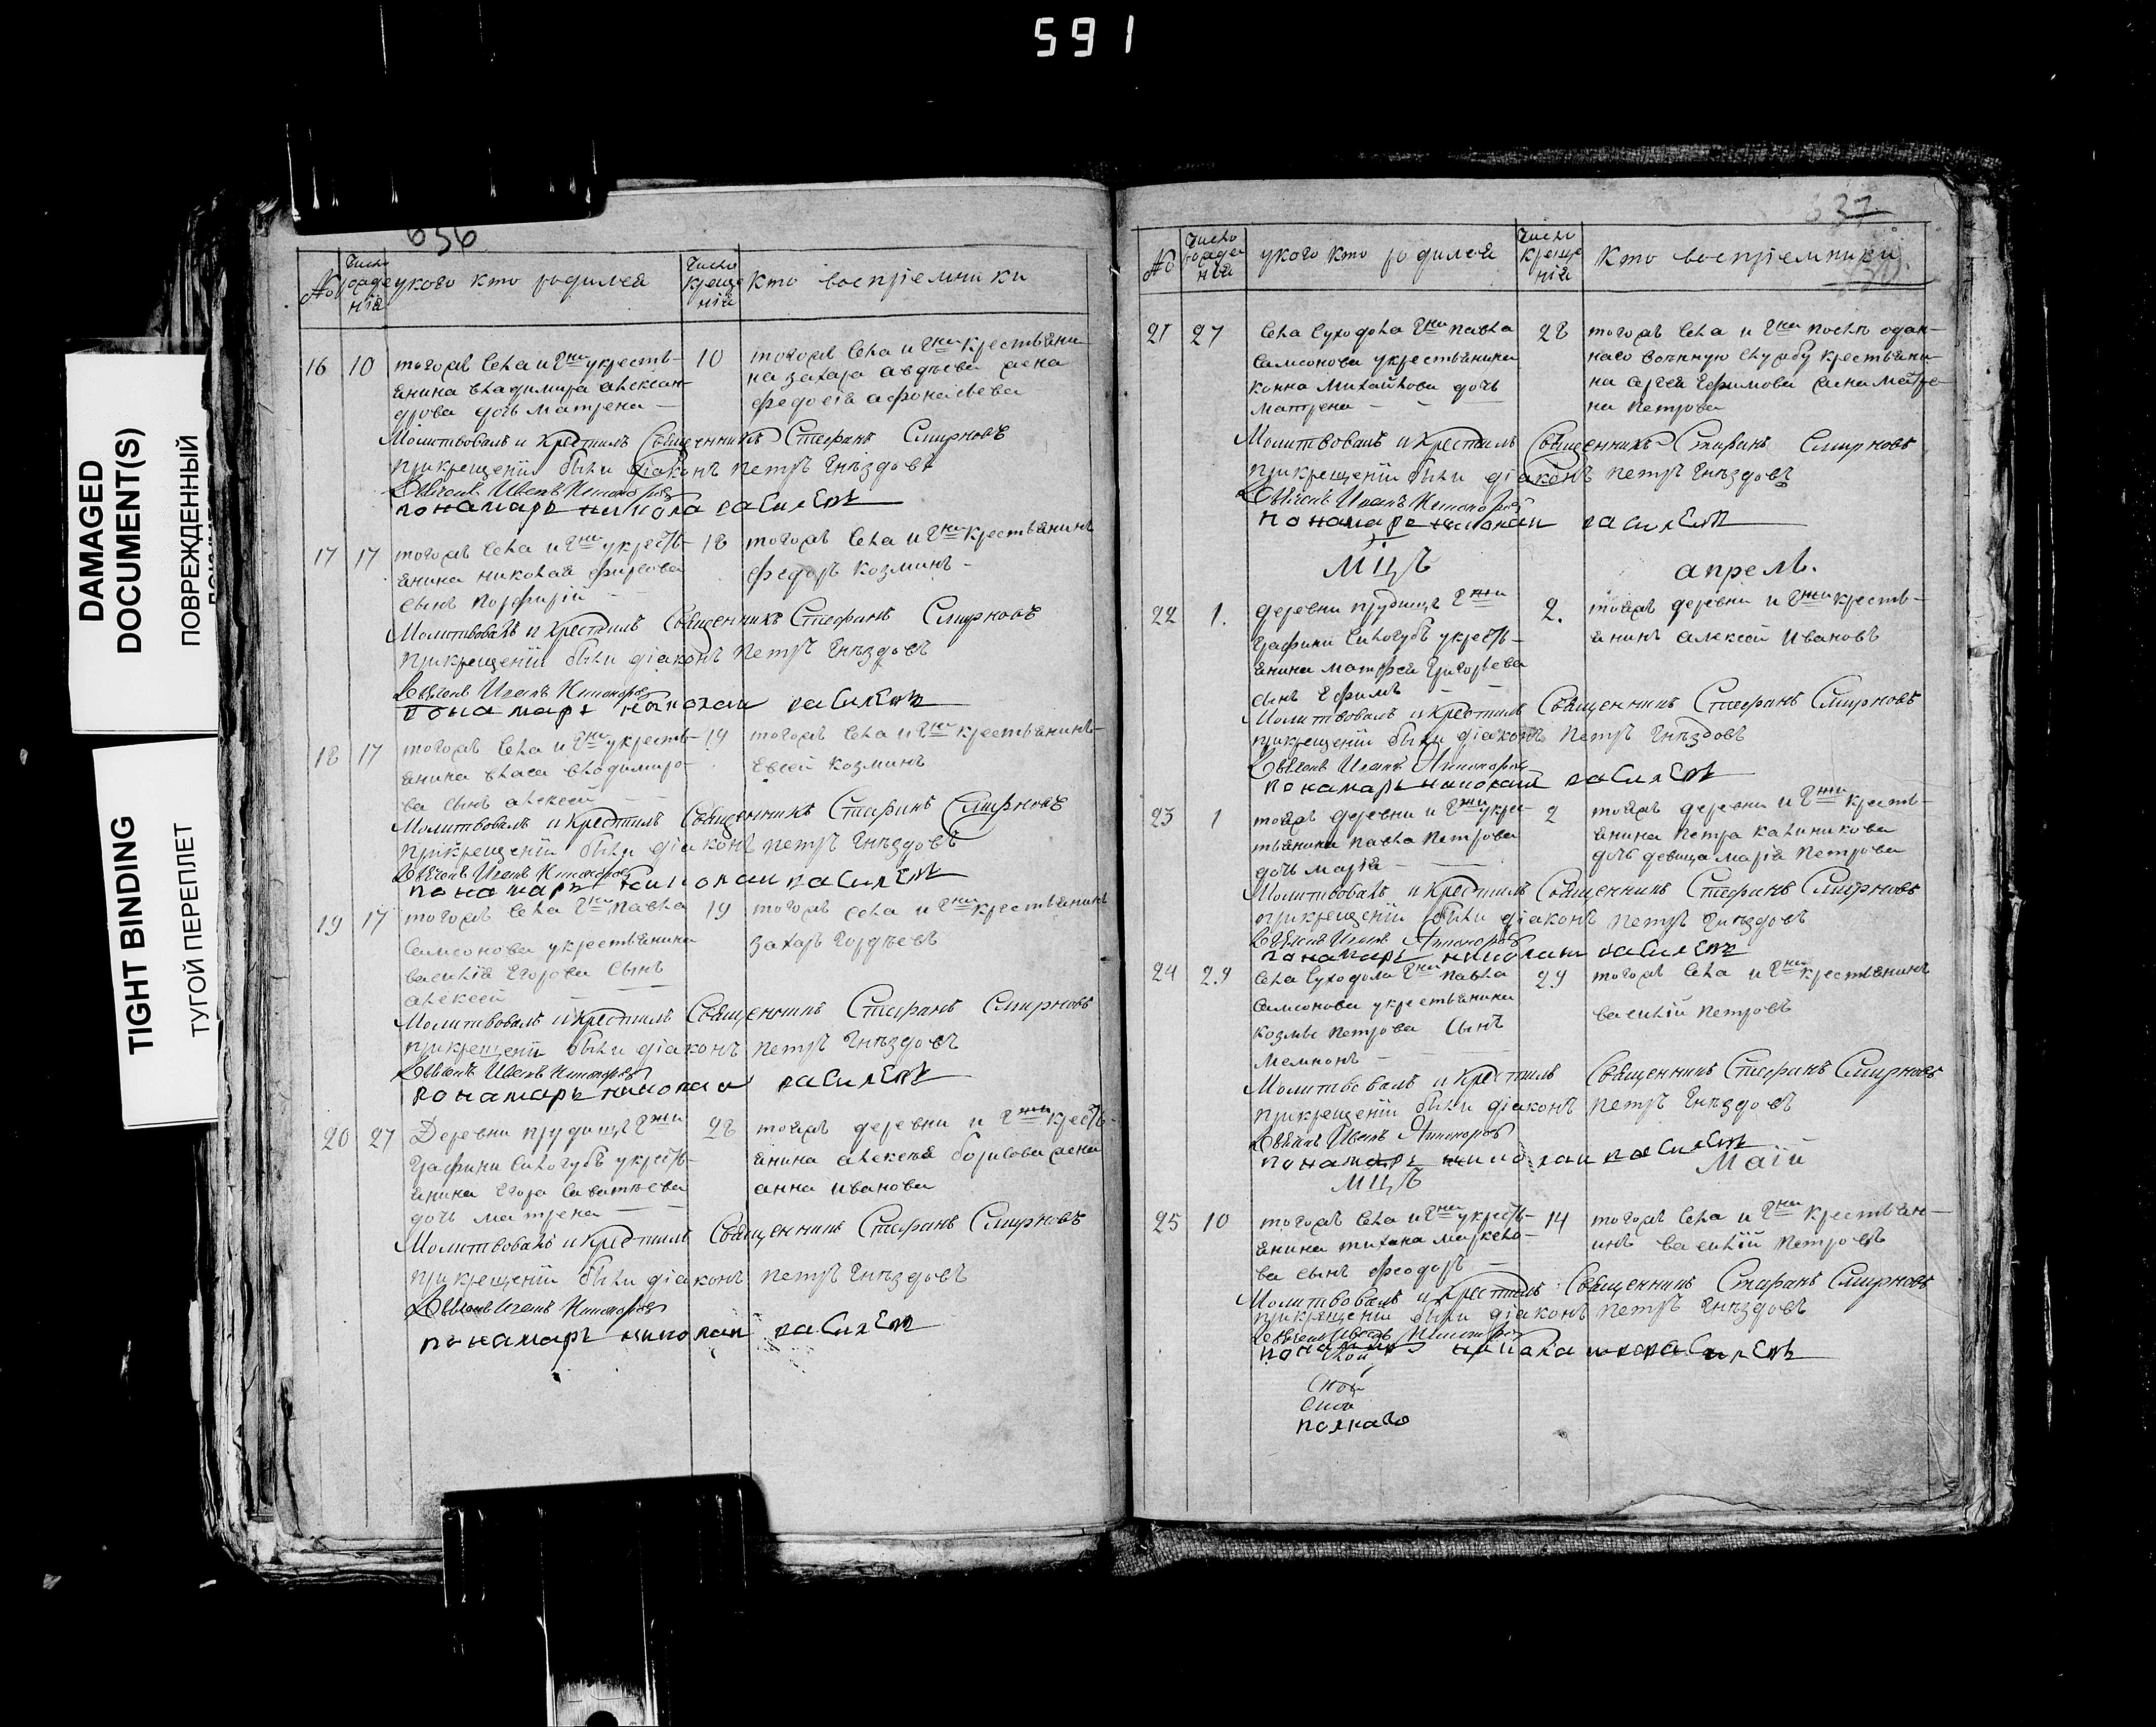 591
DAMAGED
DOCUMENT(S)
ПОВРЕЖДЕННЫЙ
TIGHT BINDING
ТУГОЙ ПЕРЕПЛЕТ
656
№
Число рожденій
у кого кто родился
Число крещеній
Кто воспріемники
16 10 тогожъ села и Гжи у кресть-
янина владимира алексан-
дрова дочь матрена
10 тогожъ села и Гжи крестьяни-
на захара авдѣева жена
федосія афонасьева
Молитвовалъ и крестилъ Священникъ Стефанъ Смирновъ
при крещеніи были діаконъ петръ Гнѣздовъ
Дьячекъ Иванъ
понамарь никола василевъ
17 17 тогожъ села и Гжи у кресть-
янина николая фирсова
сынъ порфирій
18 тогожъ села и Гжи крестьянинъ
федоръ козминъ
Молитвовалъ и крестилъ Священникъ Стефанъ Смирновъ
при крещеніи были діаконъ петръ Гнѣздовъ
Дьячекъ Иванъ
понамарь николаи василевъ
18 17 тогожъ села и Гжи у кресть-
янина власа владимиро-
ва сынъ алексей
19 тогожъ села и Гжи крестьянинъ
Евсей козминъ
Молитвовалъ и крестилъ Священникъ Стефанъ Смирновъ
при крещеніи были діаконъ петръ Гнѣздовъ
Дьячекъ Иванъ
понамарь николаи василевъ
19 17 тогожъ села Гжи павла
самсонова у крестьянина
василія Егорова сынъ
алексей
19 тогожъ села и Гжи крестьянинъ
захаръ гордѣевъ
Молитвовалъ и крестилъ Священникъ Стефанъ Смирновъ
при крещеніи были діаконъ петръ Гнѣздовъ
Дьячекъ Иванъ
понамарь николаи василевъ
20 27 Деревни прудищъ Гжи
Графини Сологубъ у кресть-
янина Егора Саватѣева
дочь матрена
28 тояжъ деревни и Гжи кресть-
янина алексѣя борисова жена
анна иванова
Молитвовалъ и крестилъ Священникъ Стефанъ Смирновъ
при крещеніи были діаконъ петръ Гнѣздовъ
Дьячекъ Иванъ
понамарь николаи василевъ
637
№
Число рожденій
у кого кто родился
Число крещеній
Кто воспріемники
21 27 села Суходола Гжи павла
самсонова у крестьянина
конна михайлова дочь
матрена
28 тогожъ села и Гжи послѣ одан-
наго воинную службу крестьяни-
на сергея Ефимова жена матре-
на петрова
Молитвовалъ и крестилъ Священникъ Стефанъ Смирновъ
при крещеніи были діаконъ петръ Гнѣздовъ
Дьячекъ Иванъ
понамарь николаи василевъ
МЦЪ апрель.
22 1. деревни прудищъ Гжи
Графини Сологубъ у кресть-
янина матфея Григорьева
сынъ Ефимъ
2. тояжъ деревни и Гжи кресть-
янинъ алексей ивановъ
Молитвовалъ и крестилъ Священникъ Стефанъ Смирновъ
при крещеніи были діаконъ петръ Гнѣздовъ
Дьячекъ Иванъ
понамарь николаи василевъ
23 1 тояжъ деревни и Гжи у кре-
стьянина павла петрова
дочь марія
2 тояжъ деревни и Гжи кресть-
янина петра калиникова
дочь девица марія петрова
Молитвовалъ и крестилъ Священникъ Стефанъ Смирновъ
при крещеніи были діаконъ петръ Гнѣздовъ
Дьячекъ Иванъ
понамарь николаи василевъ
24 29 села Суходола Гжи павла
самсонова у крестьянина
козмы петрова сынъ
мемнонъ
29 тогожъ села и Гжи крестьянинъ
василій петровъ
Молитвовалъ и крестилъ Священникъ Стефанъ Смирновъ
при крещеніи были діаконъ петръ Гнѣздовъ
Дьячекъ Иванъ
понамарь николаи василевъ
МЦЪ Маій
25 10 тогожъ села и Гжи у кресть-
янина тихана маркело-
ва сынъ феодоръ
14 тогожъ села и Гжи крестьян-
инъ василій петровъ
Молитвовалъ и крестилъ Священникъ Стефанъ Смирновъ
при крещеніи были діаконъ петръ Гнѣздовъ
Дьячекъ Иванъ